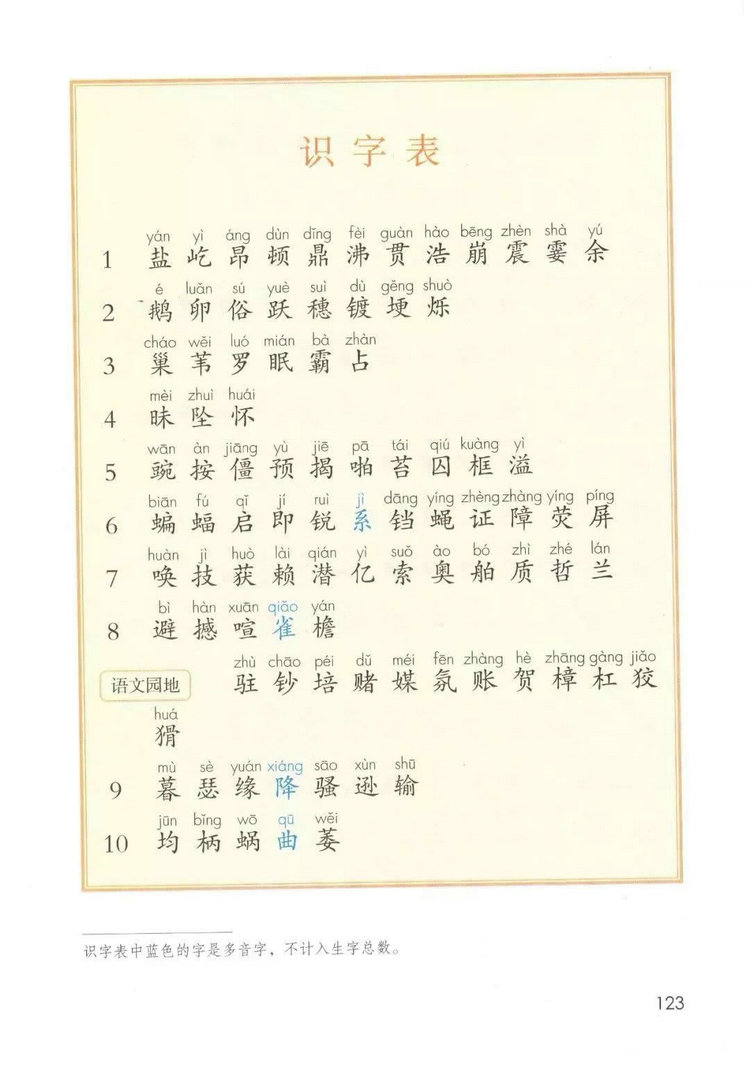 识字表
yán yì áng dùn dǐng fèi guàn hào bēng zhèn shà yú
1 盐 屹 昂 顿 鼎 沸 贯 浩 崩 震 霎 余
é luǎn sú yuè suì dù gěng shuò
2 鹅 卵 俗 跃 穗 镀 埂 烁
cháo wěi luó mián bà zhàn
3 巢 苇 罗 眠 霸 占
mèi zhuì huái
4 昧 坠 怀
wān àn jiāng yù jiē pā tái qiú kuàng yì
5 豌 按 僵 预 揭 啪 苔 囚 框 溢
biān fú qǐ jí ruì jì dāng yíng zhèng zhàng yíng píng
6 蝙 蝠 启 即 锐 系 铛 蝇 证 障 荧 屏
huàn jì huò lài qián yì suǒ ào bó zhì zhé lán
7 唤 技 获 赖 潜 亿 索 奥 舶 质 哲 兰
bì hàn xuān qiǎo yán
8 避 撼 喧 雀 檐
zhù chāo péi dǔ méi fēn zhàng hè zhāng gàng jiǎo
语文园地 驻 钞 培 赌 媒 氛 账 贺 樟 杠 狡
huá
猾
mù sè yuán xiáng sāo xùn shū
9 暮 瑟 缘 降 骚 逊 输
jūn bǐng wō qū wěi
10 均 柄 蜗 曲 萎
识字表中蓝色的字是多音字，不计入生字总数。
123